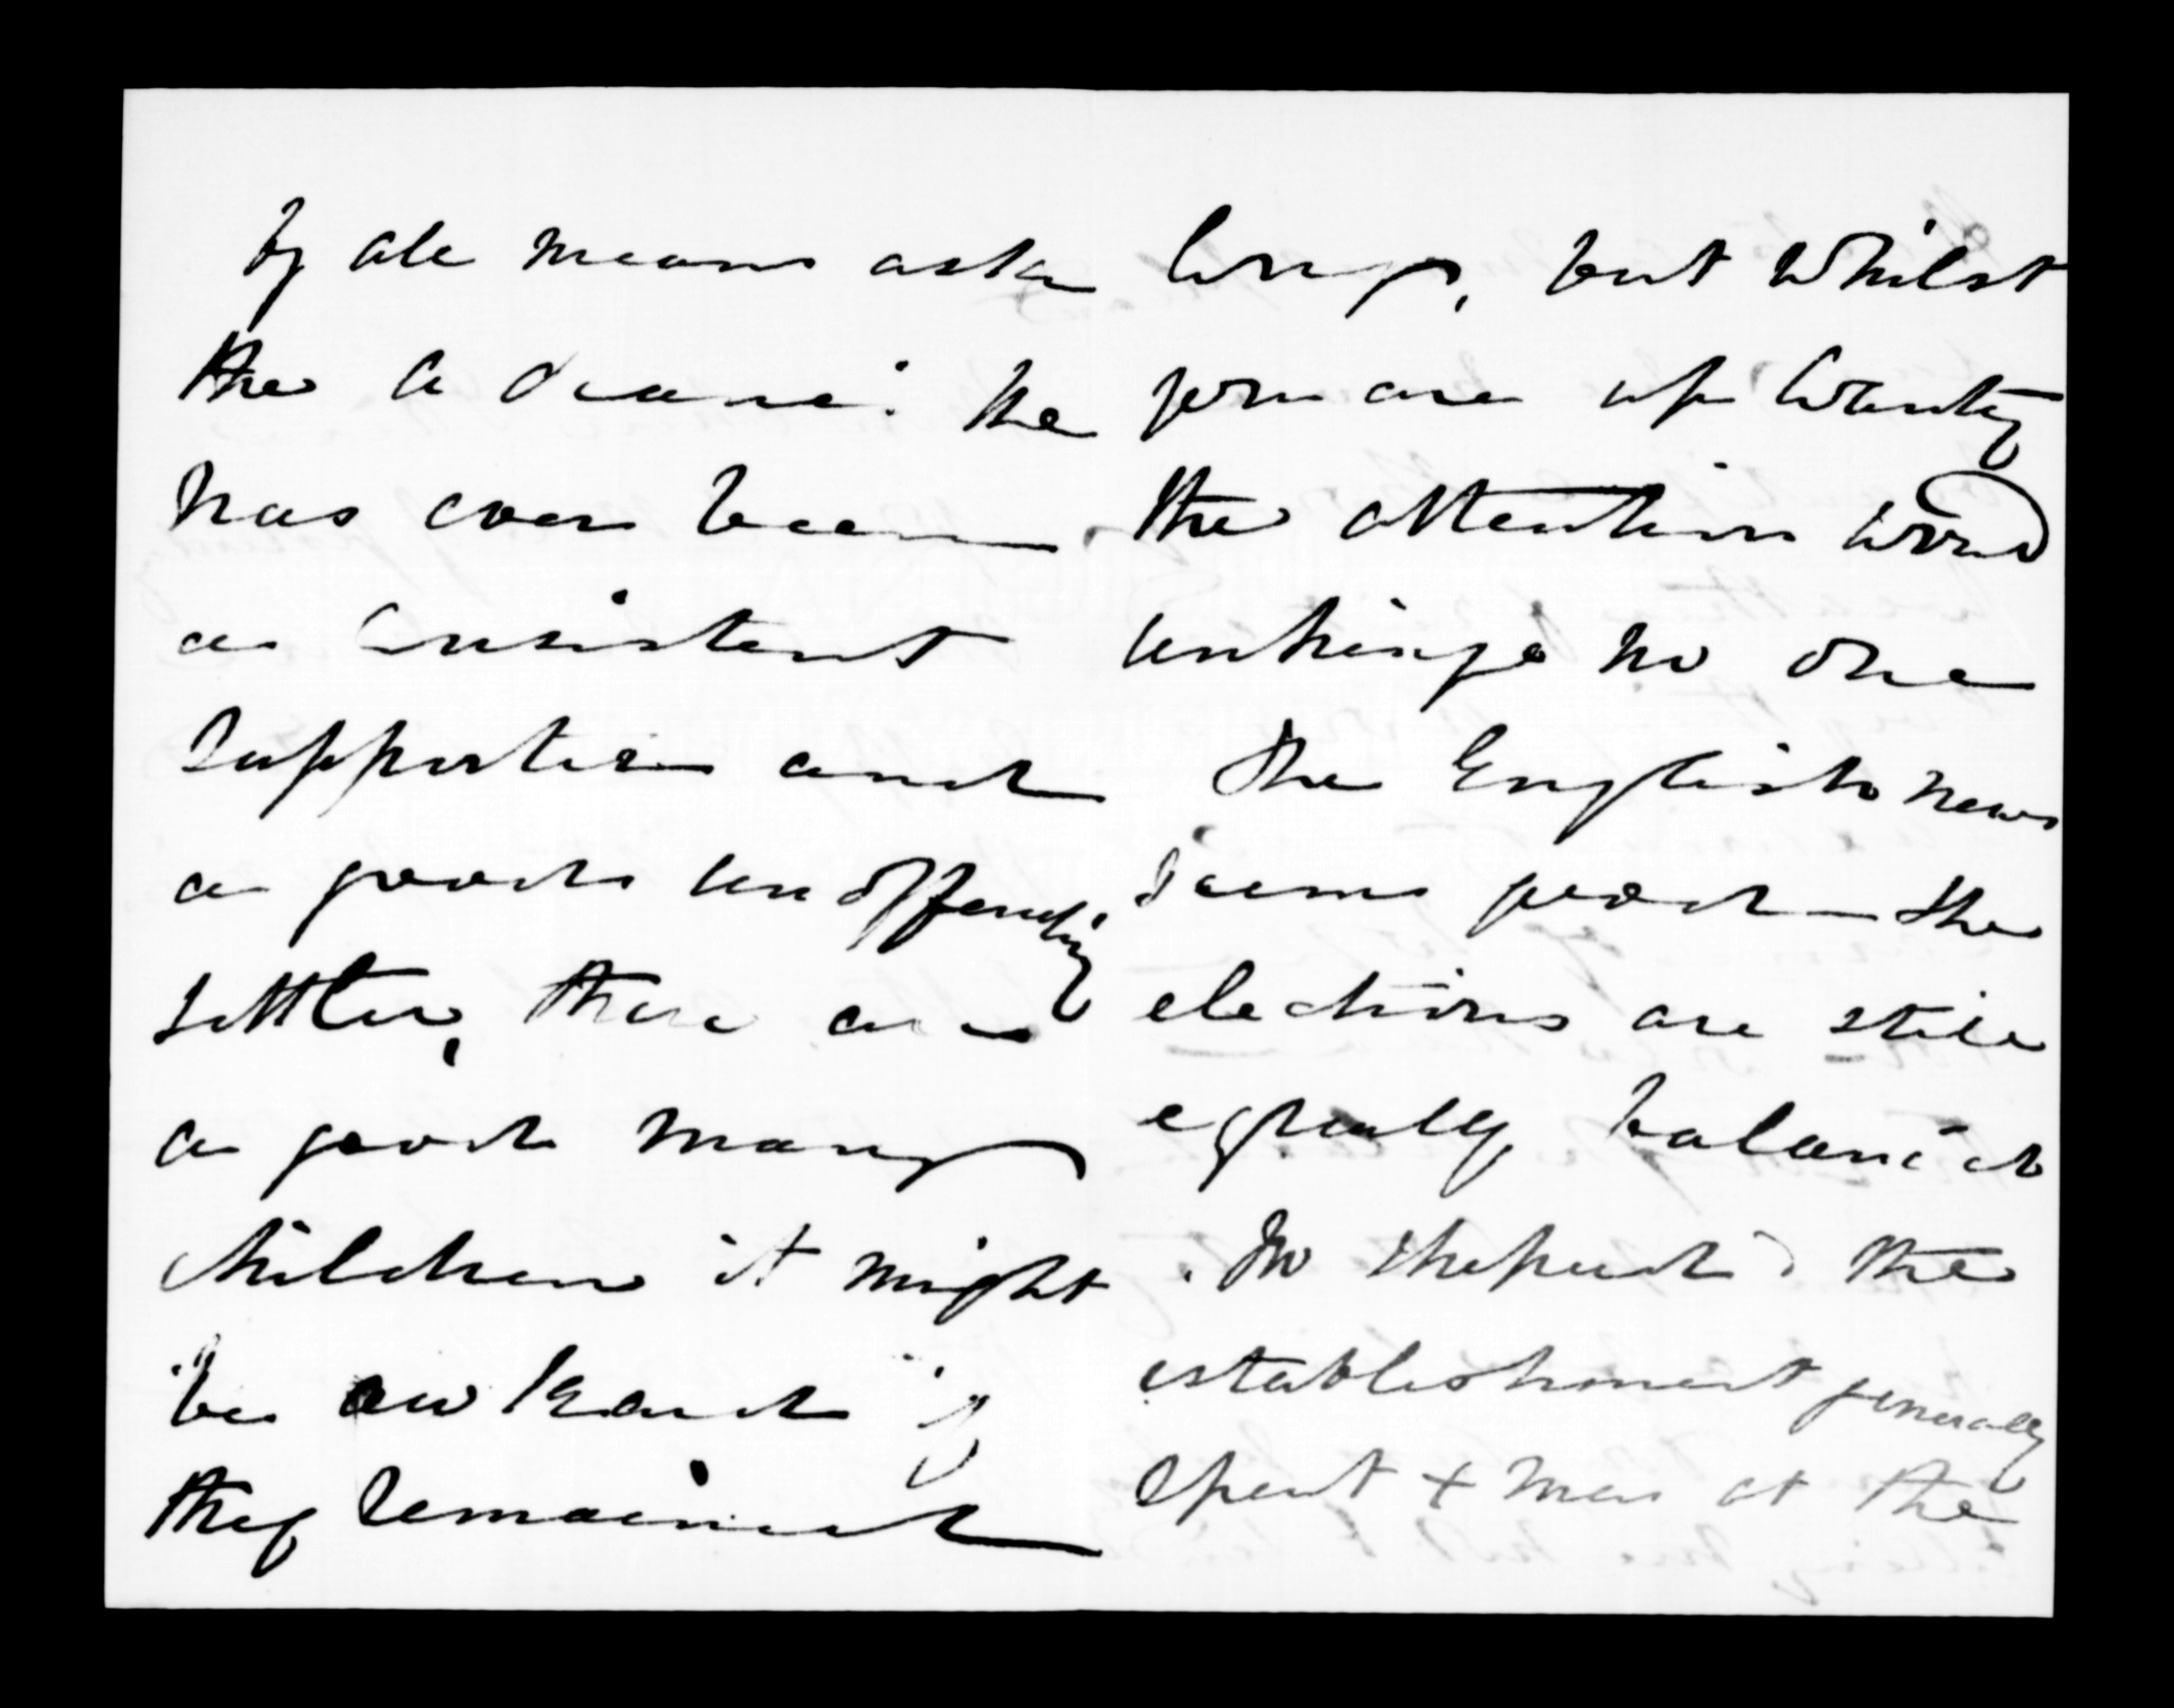 by all means ask
the
he
has ever been
a consistent
supporter and
a good unoffending
settler, there are
a good many
children it might
be awkward if
they remained
long, but whilst
you are up
the attention would
unhinge no one
The English news
seems good — the
elections are still
equally balanced
the
establishment generally
Spent & Men at the